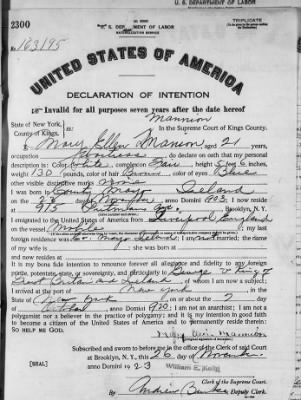 U. S. DEPARTMENT OF LABOR
TRIPLICATE
2300
U. S. DEPARTMENT OF LABOR
NATURALIZATION SERVICE
No. 163195
UNITED STATES OF AMERICA
DECLARATION OF INTENTION
Invalid for all purposes seven years after the date hereof
Mannion
State of New York,
County of Kings,
ss:
In the Supreme Court of Kings County.
I, Mary Ellen Manion aged 21 years,
occupation do declare on oath that my personal
description is: Color White complexion Fair height 5 feet 6 inches,
weight 130 pounds, color of hair Brown color of eyes Blue
other visible distinctive marks None
I was born in County Mayo Ireland
on the day of anno Domini 903; I now reside
at Brooklyn, N.Y.
I emigrated to the United States of America from Liverpool England
on the vessel Mobile; my last
foreign residence was Co. Mayo Ireland; I am not married; the name
of my wife is; she was born at
and now resides at
It is my bona fide intention to renounce forever all allegiance and fidelity to any foreign
prince, potentate, state, or sovereignty, and particularly to George V King of
Great Britain and Ireland of whom I am now a subject;
I arrived at the port of New York in the
State of New York on or about the 2 day
of October anno Domini 920; I am not an anarchist; I am not a
polygamist nor a believer in the practice of polygamy; and it is my intention in good faith
to become a citizen of the United States of America and to permanently reside therein:
SO HELP ME GOD.
Mary Mannion
Subscribed and sworn to before me in the office of the Clerk of said Court
at Brooklyn, N.Y., this 26 day of November
anno Domini 19 23
[SEAL]
William E. Kelly
Clerk of the Supreme Court.
By Andrew Deputy Clerk.